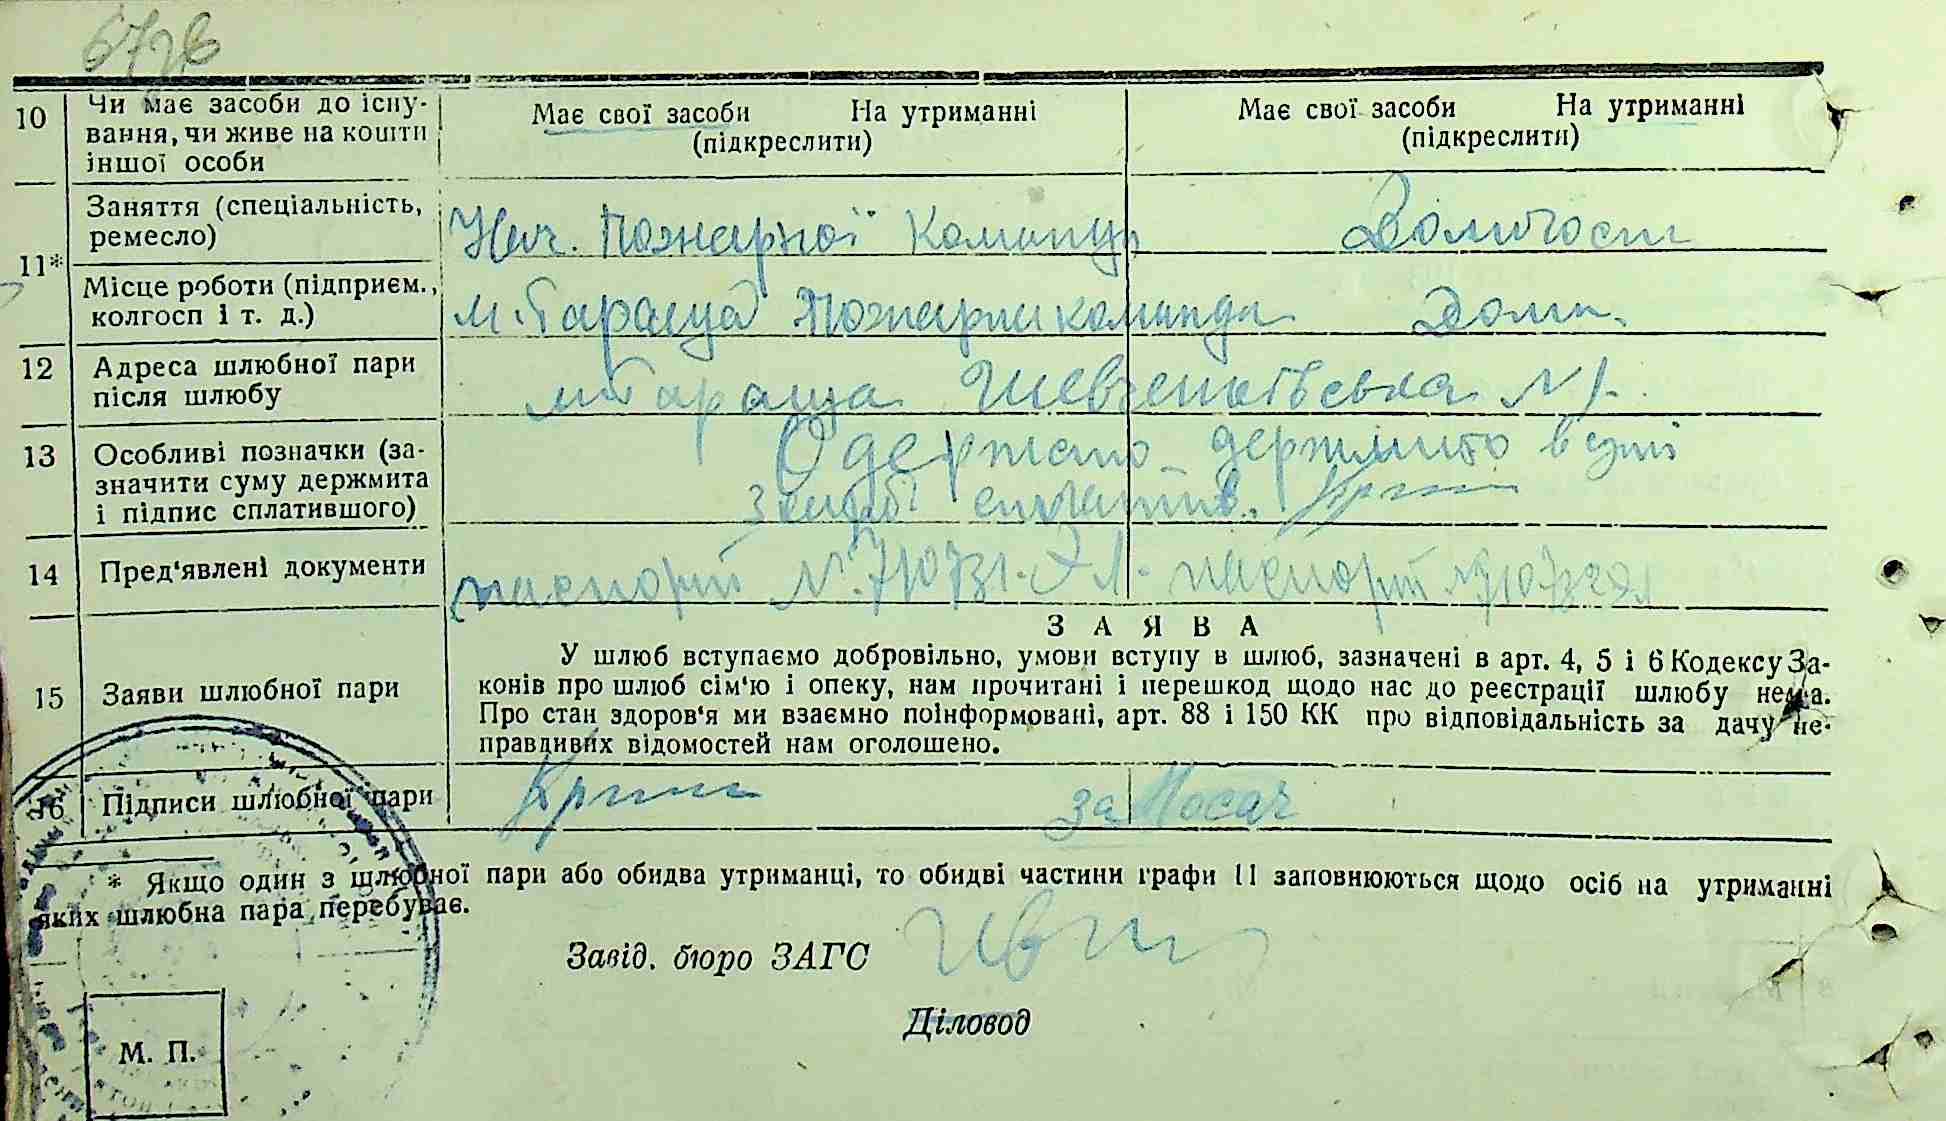 672в
10 Чи має засоби до існу- Має свої засоби На утриманні Має свої засоби На утриманні
вання, чи живе на кошти (підкреслити) (підкреслити)
іншої особи
11* Заняття (спеціальність, Нач. Пожарної Команди
ремесло)
Місце роботи (підприєм., м. Тараща Пожарна команда Дома.
колгосп і т. д.)
12 Адреса шлюбної пари м Тараща Шевченківська №
після шлюбу
13 Особливі позначки (за- Одержано держмито в сумі
значити суму держмита 3
і підпис сплатившого)
14 Пред'явлені документи паспорт № 710731 паспорт №
З А Я В А
15 Заяви шлюбної пари У шлюб вступаємо добровільно, умови вступу в шлюб, зазначені в арт. 4, 5 і 6 Кодексу За-
конів про шлюб сім'ю і опеку, нам прочитані і перешкод щодо нас до реєстрації шлюбу нема.
Про стан здоров'я ми взаємно поінформовані, арт. 88 і 150 КК про відповідальність за дачу не-
правдивих відомостей нам оголошено.
16 Підписи шлюбної пари за Носач
* Якщо один з шлюбної пари або обидва утриманці, то обидві частини графи 11 заповнюються щодо осіб на утриманні
яких шлюбна пара перебуває.
Завід. бюро ЗАГС
Діловод
М. П.